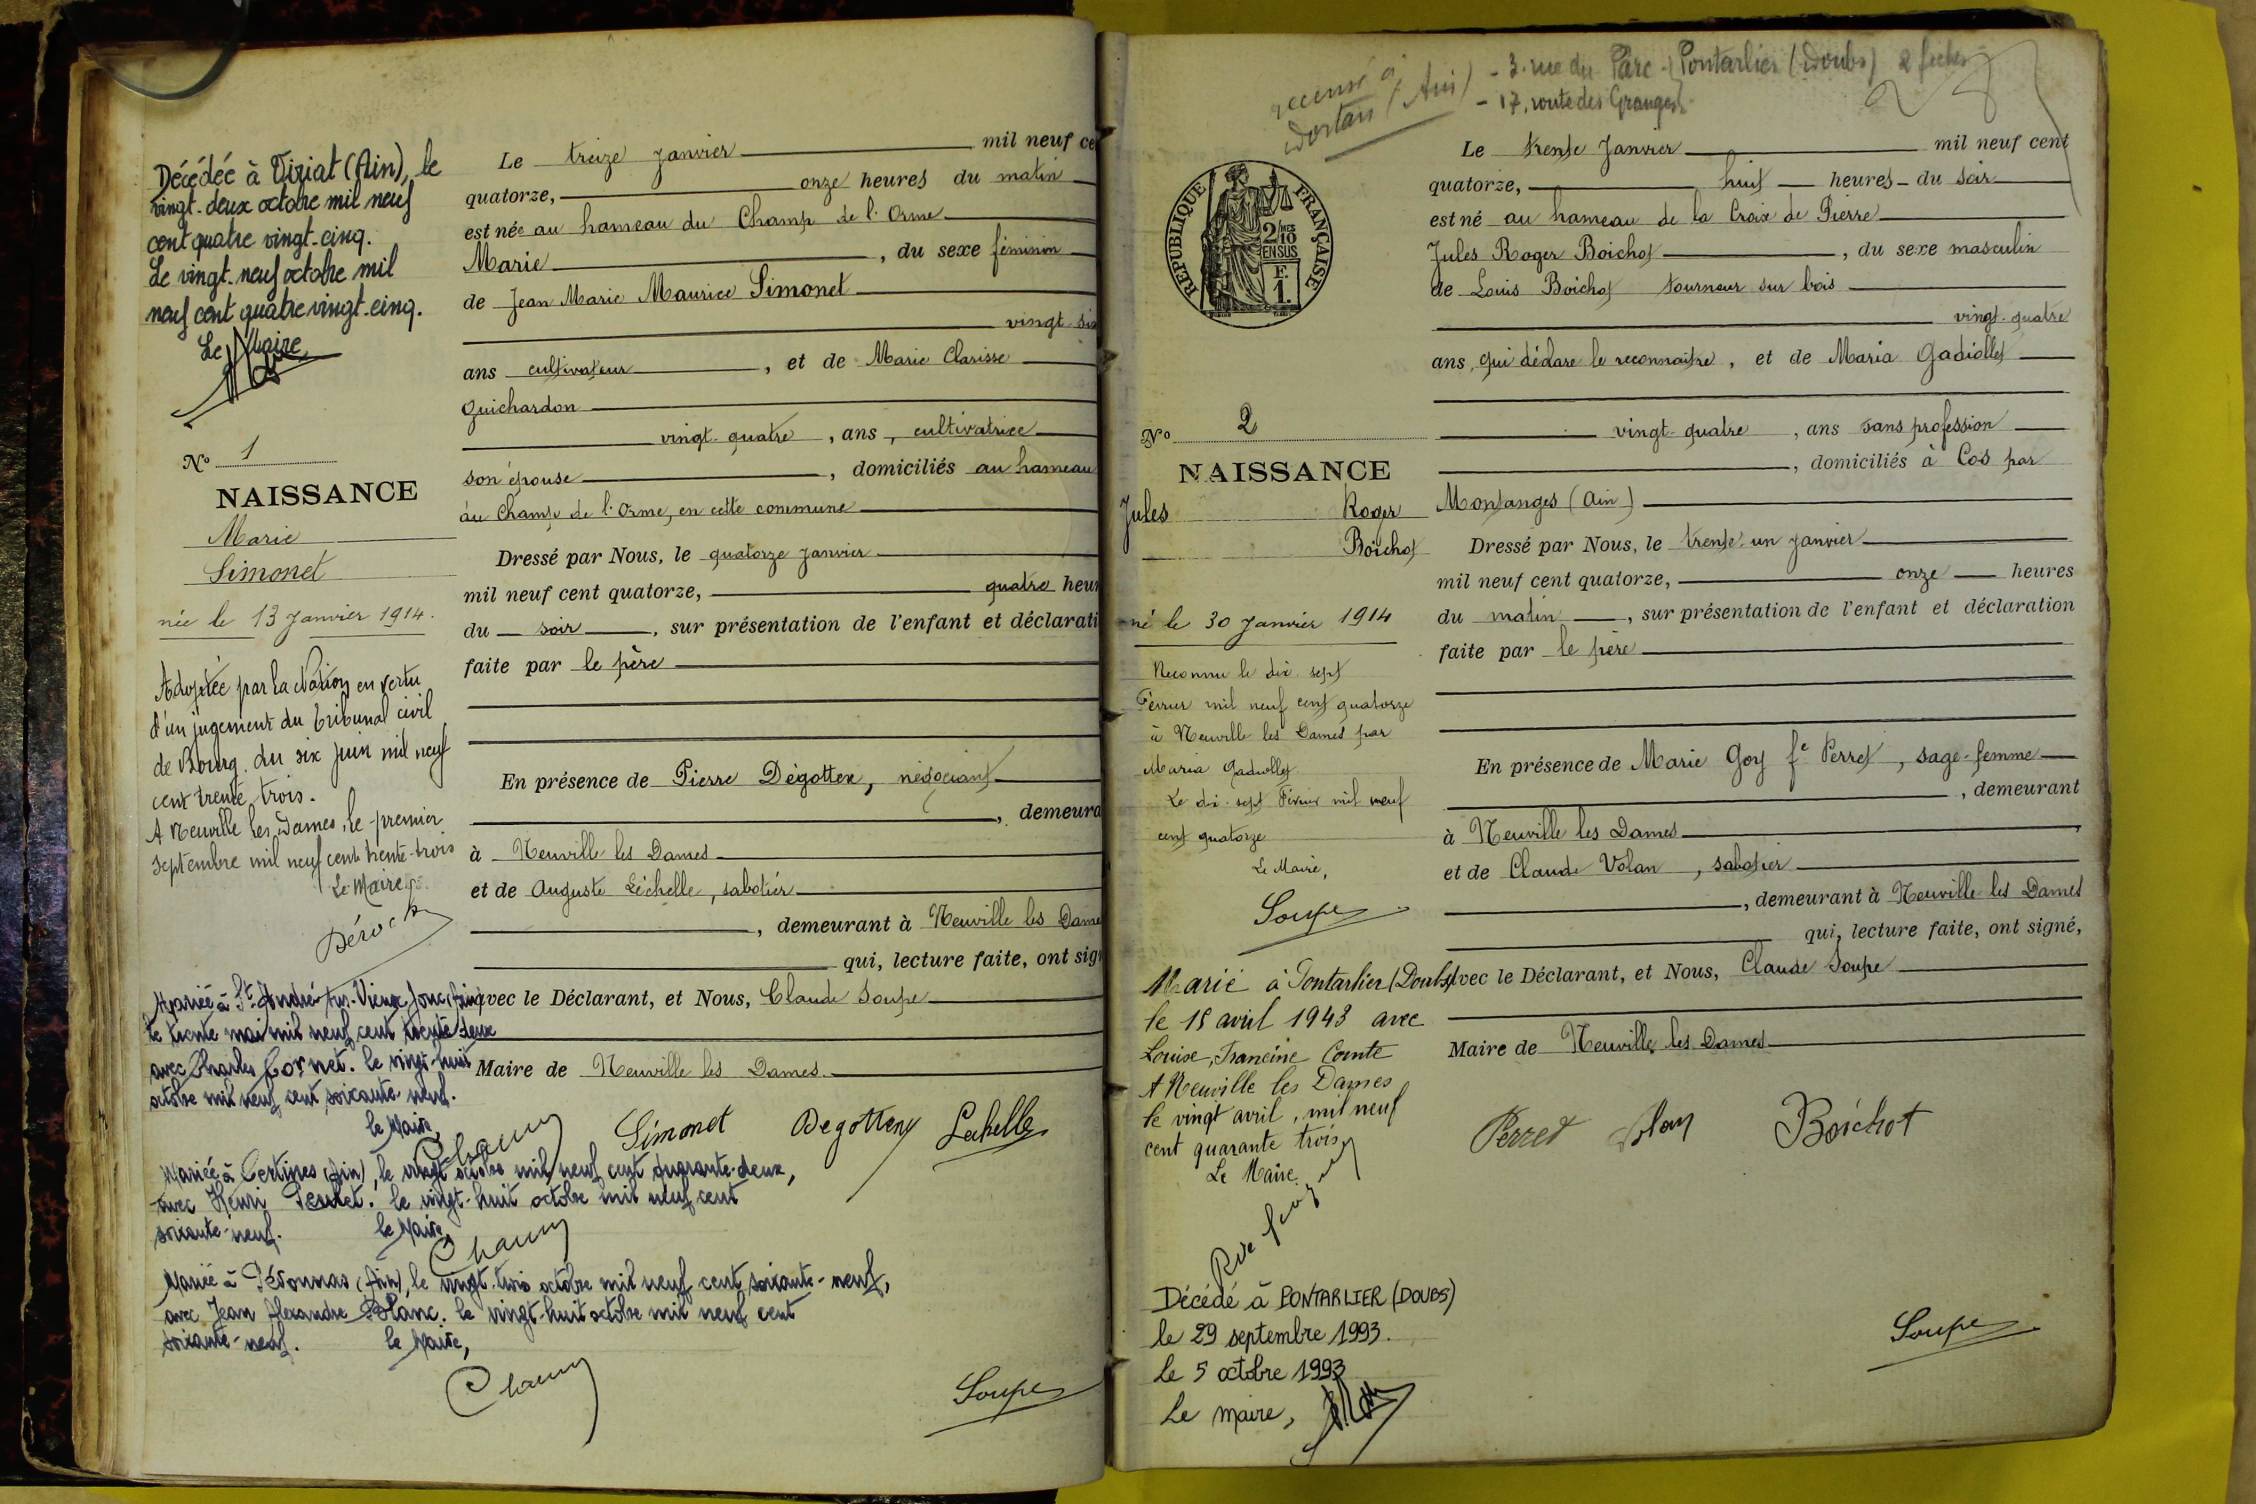 Décédée à Viriat (Ain), le
vingt-deux octobre mil neuf
cent quatre vingt-cinq.
Le vingt-neuf octobre mil
neuf cent quatre vingt-cinq.
Le Maire,
Nº 1
NAISSANCE
Marie
Simonet
née le 13 Janvier 1914.
Adoptée par la Nation en vertu
d'un jugement du Tribunal civil
de Bourg. du six juin mil neuf
cent trente trois.
A Neuville les Dames, le premier
septembre mil neuf cent trente-trois
Le Maire
Mariée à St André-sur-Vieux Jonc, (Ain)
le trente mai mil neuf cent trente deux
avec Charles Cornet. le vingt-huit
octobre mil neuf cent soixante-neuf.
le Maire,
Mariée à Certines (Ain), le vingt octobre mil neuf cent quarante-deux,
avec Henri Pesnet. le vingt-huit octobre mil neuf cent
soixante-neuf. le Maire
Mariée à Péronnas (Ain), le vingt-trois octobre mil neuf cent soixante-neuf,
avec Jean Alexandre Blanc. le vingt-huit octobre mil neuf cent
soixante-neuf. le Maire,
Le treize Janvier mil neuf ce
quatorze, onze heures du matin
est née au hameau du Champ de l'Orme
Marie , du sexe féminin
de Jean Marie Maurice Simonet
vingt-six
ans cultivateur , et de Marie Clarisse
Guichardon
vingt-quatre , ans , cultivatrice
son épouse , domiciliés au hameau
du Champ de l'Orme, en cette commune
Dressé par Nous, le quatorze janvier
mil neuf cent quatorze, quatre heur
du soir , sur présentation de l'enfant et déclarati
faite par le père
En présence de Pierre Dégottex, négociant
, demeura
à Neuville les Dames
et de Auguste Léchelle, sabotier
, demeurant à Neuville les Dame
qui, lecture faite, ont sign
avec le Déclarant, et Nous, Claude Soupe
Maire de Neuville les Dames.
Simonet Degottex Lechelle
Soupe
recensé à
Dortan (Ain)
- 3. rue du Parc - Pontarlier (Doubs) 2 fiches
- 17, route des Granges
RÉPUBLIQUE FRANÇAISE
2/10
EN SUS
F.
1.
Nº 2
NAISSANCE
Jules Roger
Boichot
né le 30 Janvier 1914
Reconnu le dix sept
Février mil neuf cent quatorze
à Neuville les Dames par
Maria Gadiollet
Le dix-sept Février mil neuf
cent quatorze
Le Maire,
Soupe
Marié à Pontarlier (Doubs)
le 15 avril 1943 avec
Louise, Francine Comte
A Neuville les Dames
le vingt avril, mil neuf
cent quarante trois
Le Maire
Décédé à PONTARLIER (DOUBS)
le 29 septembre 1993.
le 5 octobre 1993
Le maire,
Le trente Janvier mil neuf cent
quatorze, huit heures du soir
est né au hameau de la Croix de Pierre
Jules Roger Boichot , du sexe masculin
de Louis Boichot tourneur sur bois
vingt-quatre
ans, qui déclare le reconnaître, et de Maria Gadiollet
vingt-quatre , ans sans profession
, domiciliés à Cos par
Montanges (Ain)
Dressé par Nous, le trente-un janvier
mil neuf cent quatorze, onze heures
du matin , sur présentation de l'enfant et déclaration
faite par le père
En présence de Marie Goy fe Perret, sage-femme
, demeurant
à Neuville les Dames
et de Claude Volan , sabotier
, demeurant à Neuville les Dames
qui, lecture faite, ont signé,
avec le Déclarant, et Nous, Claude Soupe
Maire de Neuville les Dames
Perret Volan Boichot
Soupe